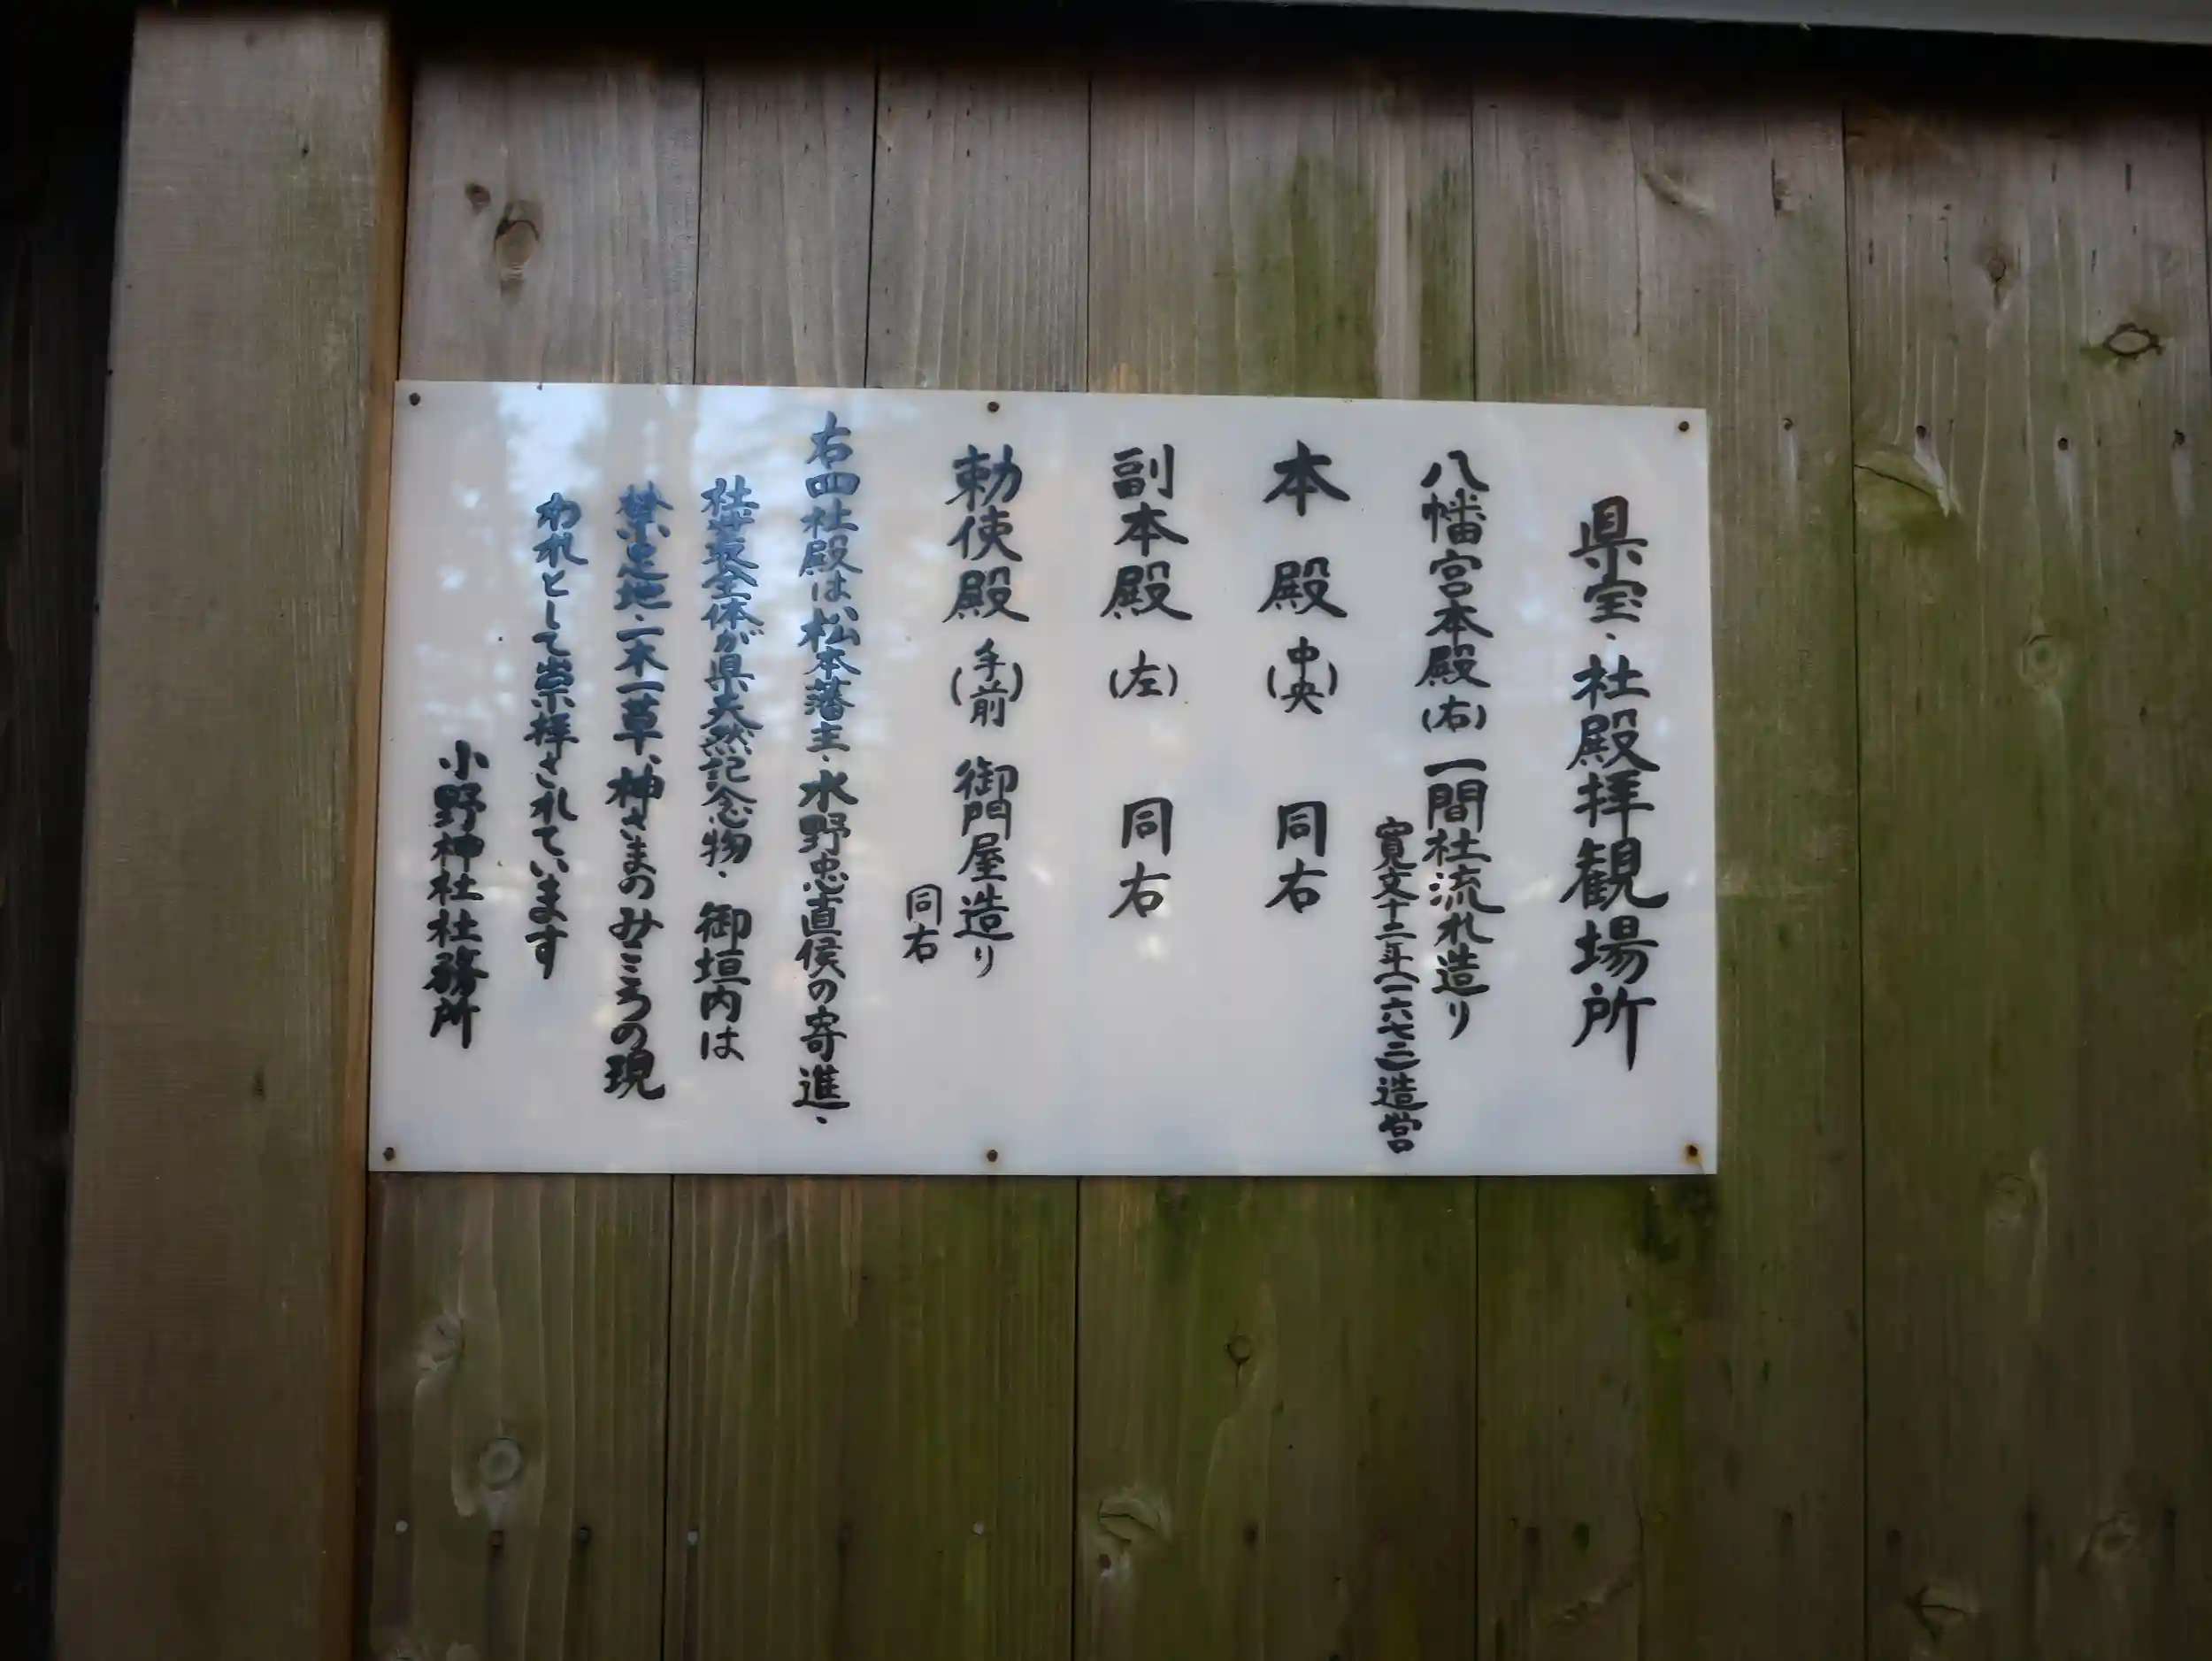 県宝・社殿拝観場所
八幡宮本殿(右) 一間社流れ造り
寛文十二年(一六七二)造営
本殿(中央) 同右
副本殿(左) 同右
勅使殿(手前) 御門屋造り
同右
右四社殿は松本藩主、水野忠直侯の寄進、
社叢全体が県天然記念物、御垣内は
禁足地、一木一草、神さまのみこころの現
われとして崇拝されています
小野神社社務所